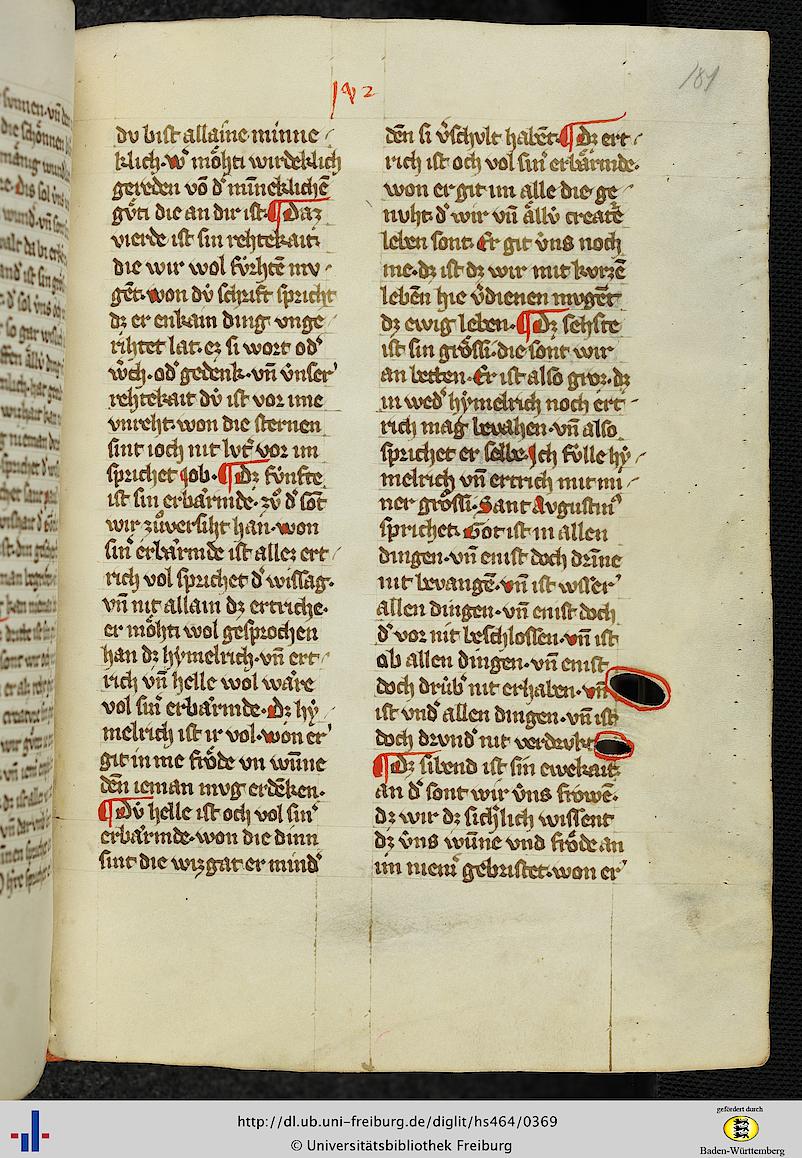 192
181
dv bist allaine minne
klich· wͦ moͤhti wirdeklich
gereden võ dͦ mineklichē
guͤti die an dir ist· ¶ Daz
vierde ist sin rehtekait·
die wir wol fúrhtē mv
gēt· won dú schrift spricht
dz er enkain ding vnge
rihtet lat· ez si wort odͦ
ẘch· odͦ gedenk· vn̄ v́nserͥ
rehtekait dv́ ist vor ime
vnreht· won die sternen
sint ioch nit lvtͥ vor im
sprichet Iob· ¶ Dz fúnfte
ist sin erbaͤrmde· zvͦ dͦ sōt
wir zuͦversiht han· won
sinͥ erbaͤrmde ist allez ert
rich vol sprichet dͦ wissag·
vn̄ nit allain dz ertriche·
er moͤhti wol gesprochen
han dz hẏmelrich· vn̄ ert
rich vn̄ helle wol waͤre
vol sinͥ erbaͤrmde· Dz hẏ
melrich ist ir vol· won erͥ
git in me froͤde vn wn̄ne
dēn ieman mvg erdēken·
¶ Dv́ helle ist och vol sinͥ
erbaͤrmde· won die dinn
sint die wizgat er mindͥ
dēn si v́schvlt habēt· ¶ Dz ert
rich ist och vol sinͥ erbaͤrmde·
won er git im alle die ge
nvht dͥ wir vn̄ aͤllv́ creatē
leben sont· Er git v́ns noch
me· dz ist dz wir mit kvrzē
lebēn hie v́dienen mvgēt
dz ewig leben· ¶ Dz sehste
ist sin groͤssi· die sont wir
an betten· Er ist also groz· dz
in wedͥ hẏmelrich noch ert
rich mag bevahen· vn̄ also
sprichet er selbe· Ich fúlle hẏ
melrich vn̄ ertrich mit mi
ner groͤssi· Sant Avgustinͥ
sprichet· Got ist in allen
dingen· vn̄ enist doch drīne
nit bevangē· vn̄ ist vsserͥ
allen dingen· vn̄ enist doch
dͥ vor nit beschlossen· vn̄ ist
ob allen dingen· vn̄ enist
doch drúbͥ nit erhaben· vn̄
ist vndͥ allen dingen· vn̄ ist
doch drvndͥ nit verdrvkt·
¶ Dz sibend ist sin ewekait·
an dͥ sont wir v́ns froͤwē·
dz wir dz sichͥlich wissent
dz v́ns wn̄ne vnd froͤde an
im niemͥ gebristet· won erͥ
http://dl.ub.uni-freiburg.de/diglit/hs464/0369
© Universitätsbibliothek Freiburg
gefördert durch
Baden-Württemberg